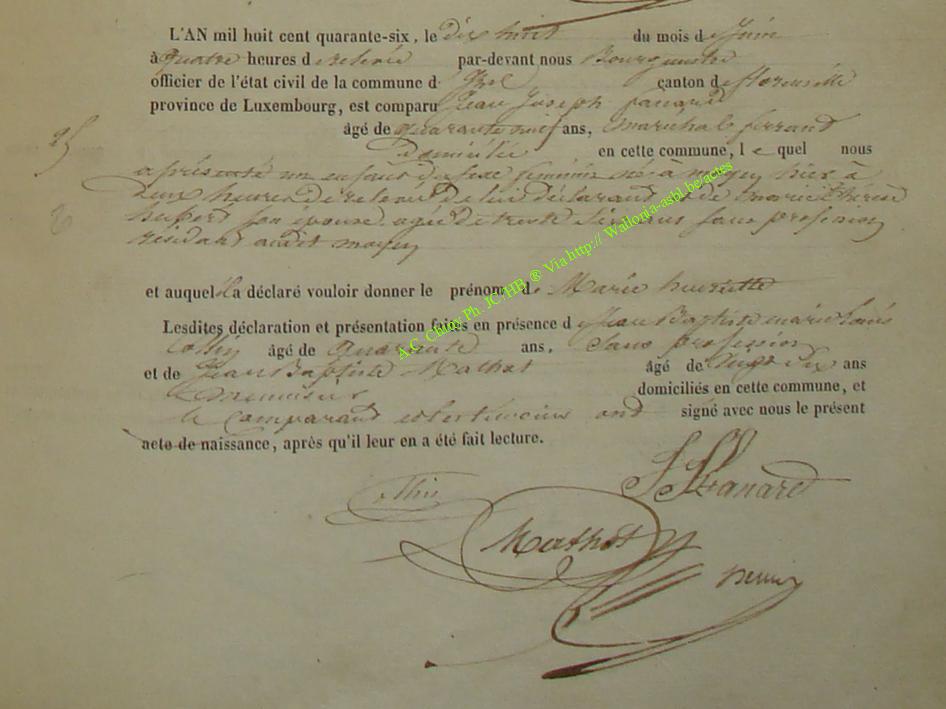 L'AN mil huit cent quarante-six, le dix huit du mois de Juin
à quatre heures de relevée par-devant nous Bourgmestre
officier de l'état civil de la commune d'Izel canton de florenville
province de Luxembourg, est comparu Jean Joseph fanard
25
âgé de quarante neuf ans, maréchal ferrand
domicilié en cette commune, le quel nous
a présenté un enfant du sexe féminin né à moyen hier à
deux heures de relevée de lui déclarant et de marie thérèse
son épouse agée de trente ans sans profession
résidant audit moyen
et auquel il a déclaré vouloir donner le prénom de Marie henriette
Lesdites déclaration et présentation faites en présence de Jean Baptiste marie louis
Collin âgé de quarante ans, sans profession
et de Jean Baptiste Mathot âgé de vingt six ans
menuisier domiciliés en cette commune, et
le comparant et les témoins ont signé avec nous le présent
acte de naissance, après qu'il leur en a été fait lecture.
JJ fanard
Collin
Mathot
A.C. Chiny Ph. JC/HB ® Via http:// Wallonia-asbl.be/actes